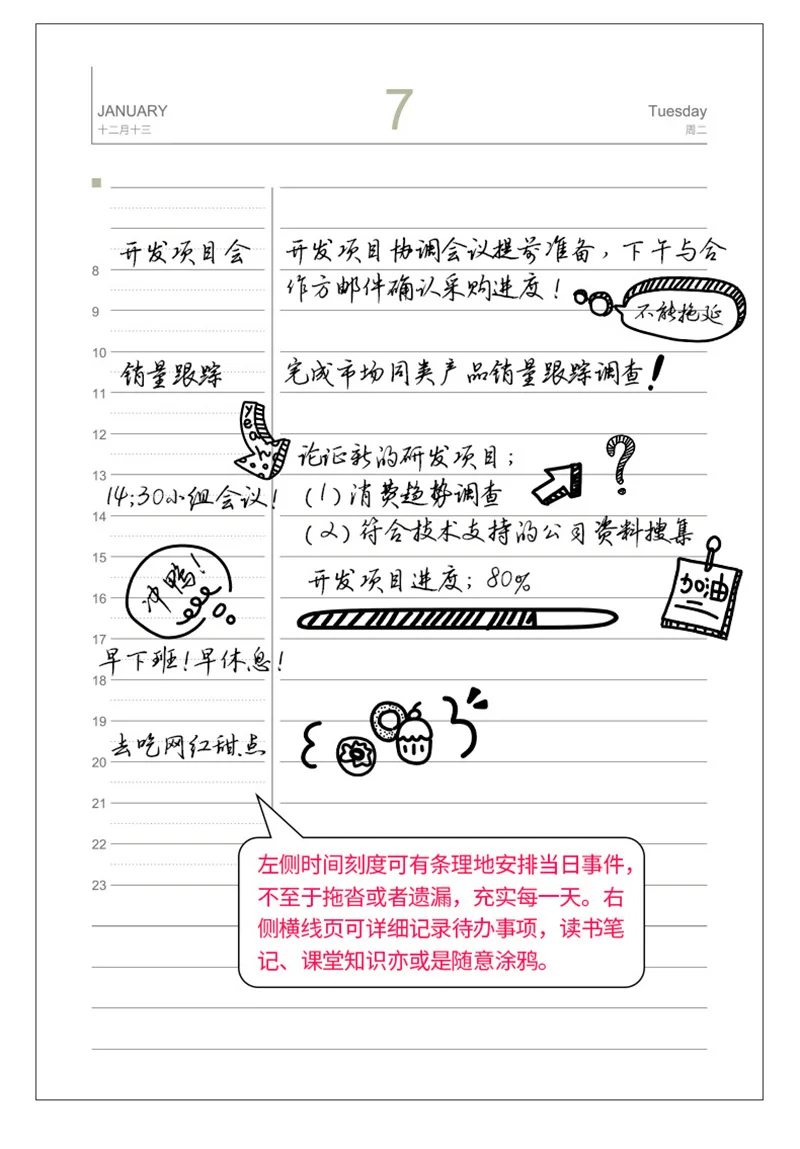 7
JANUARY
Tuesday
十二月十三
周二
开发项目会
开发项目协调会议提前准备，下午与合
作方邮件确认采购进度！
不能拖延
8
9
10
销量跟踪
完成市场同类产品销量跟踪调查！
11
yeah
12
论证新的研发项目；
?
13
14;30小组会议！
(1)消费趋势调查
14
(2)符合技术支持的公司资料搜集
15
冲鸭！
开发项目进度；80%
加油
16
17
早下班！早休息！
18
19
去吃网红甜点
20
21
22
23
左侧时间刻度可有条理地安排当日事件，
不至于拖沓或者遗漏，充实每一天。右
侧横线页可详细记录待办事项，读书笔
记、课堂知识亦或是随意涂鸦。